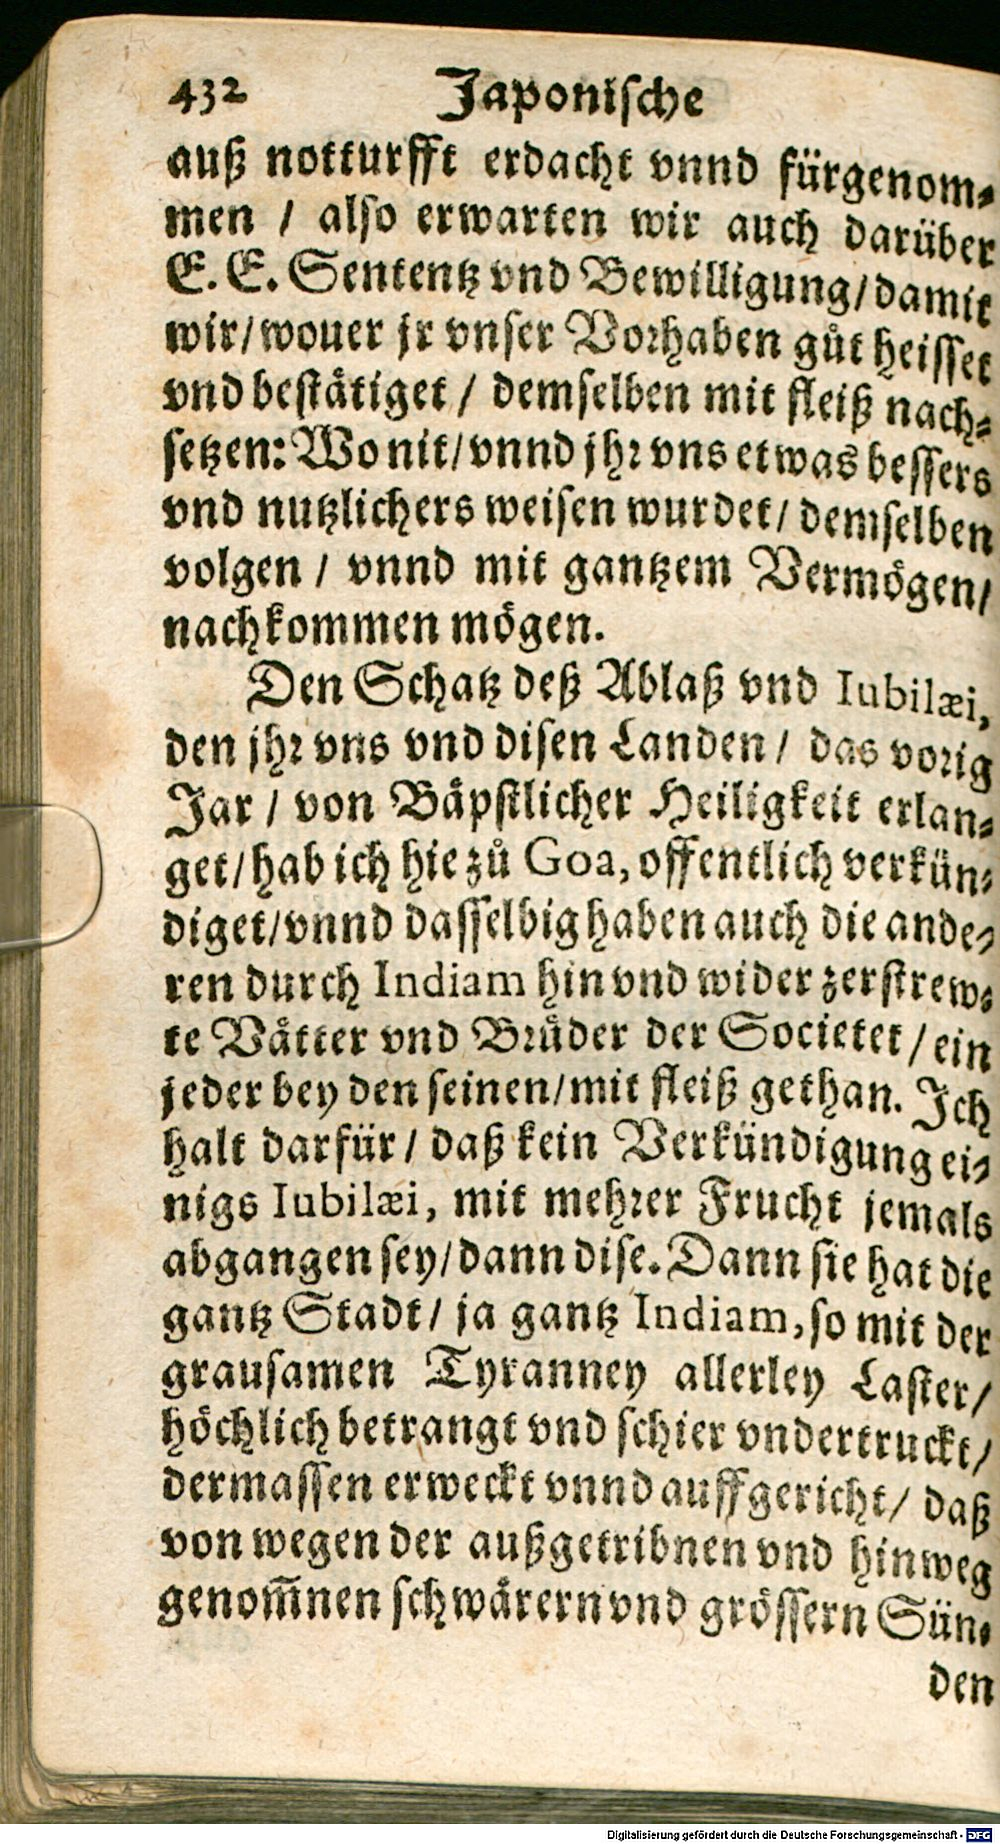 432 Japonische
auß notturfft erdacht vnnd fürgenom⸗
men / also erwarten wir auch darüber
E. E. Sententz vnd Bewilligung/damit
wir/wouer jr vnser Vorhaben gůt heisset
vnd beståtiget / demselben mit fleiß nach⸗
setzen: Wo nit/vnnd jhr vns etwas bessers
vnd nutzlichers weisen wurdet/ demselben
volgen / vnnd mit gantzem Vermögen/
nachkommen mögen.
Den Schatz deß Ablaß vnd Iubilæi,
den jhr vns vnd disen Landen / das vorig
Jar / von Båpstlicher Heiligkeit erlan⸗
get/hab ich hie zů Goa, offentlich verkün⸗
diget/vnnd dasselbig haben auch die ande⸗
ren durch Indiam hin vnd wider zerstrew⸗
te Våtter vnd Brůder der Societet / ein
jeder bey den seinen/mit fleiß gethan. Ich
halt darfür / daß kein Verkündigung ei⸗
nigs Iubilæi, mit mehrer Frucht jemals
abgangen sey/dann dise. Dann sie hat die
gantz Stadt/ ja gantz Indiam, so mit der
grausamen Tyranney allerley Laster/
höchlich betrangt vnd schier vndertruckt/
dermassen erweckt vnnd auffgericht/ daß
von wegen der außgetribnen vnd hinweg
genom̃nen schwårern vnd grössern Sün⸗
den
Digitalisierung gefördert durch die Deutsche Forschungsgemeinschaft - DFG